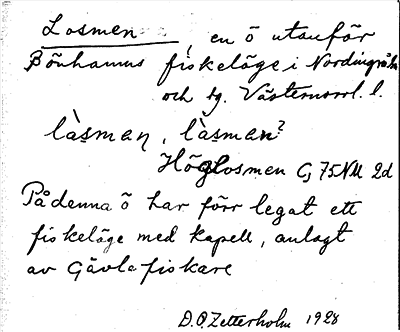 Losmen, en ö utanför
Bönhamns fiskeläge i Nordingrå
och tg. Västernorrl. l.
làsman, làsman?
Höglosmen G 75NV 2d
På denna ö har förr legat ett
fiskeläge med kapell, anlagt
av Gävlefiskare
D.O.Zetterholm 1928